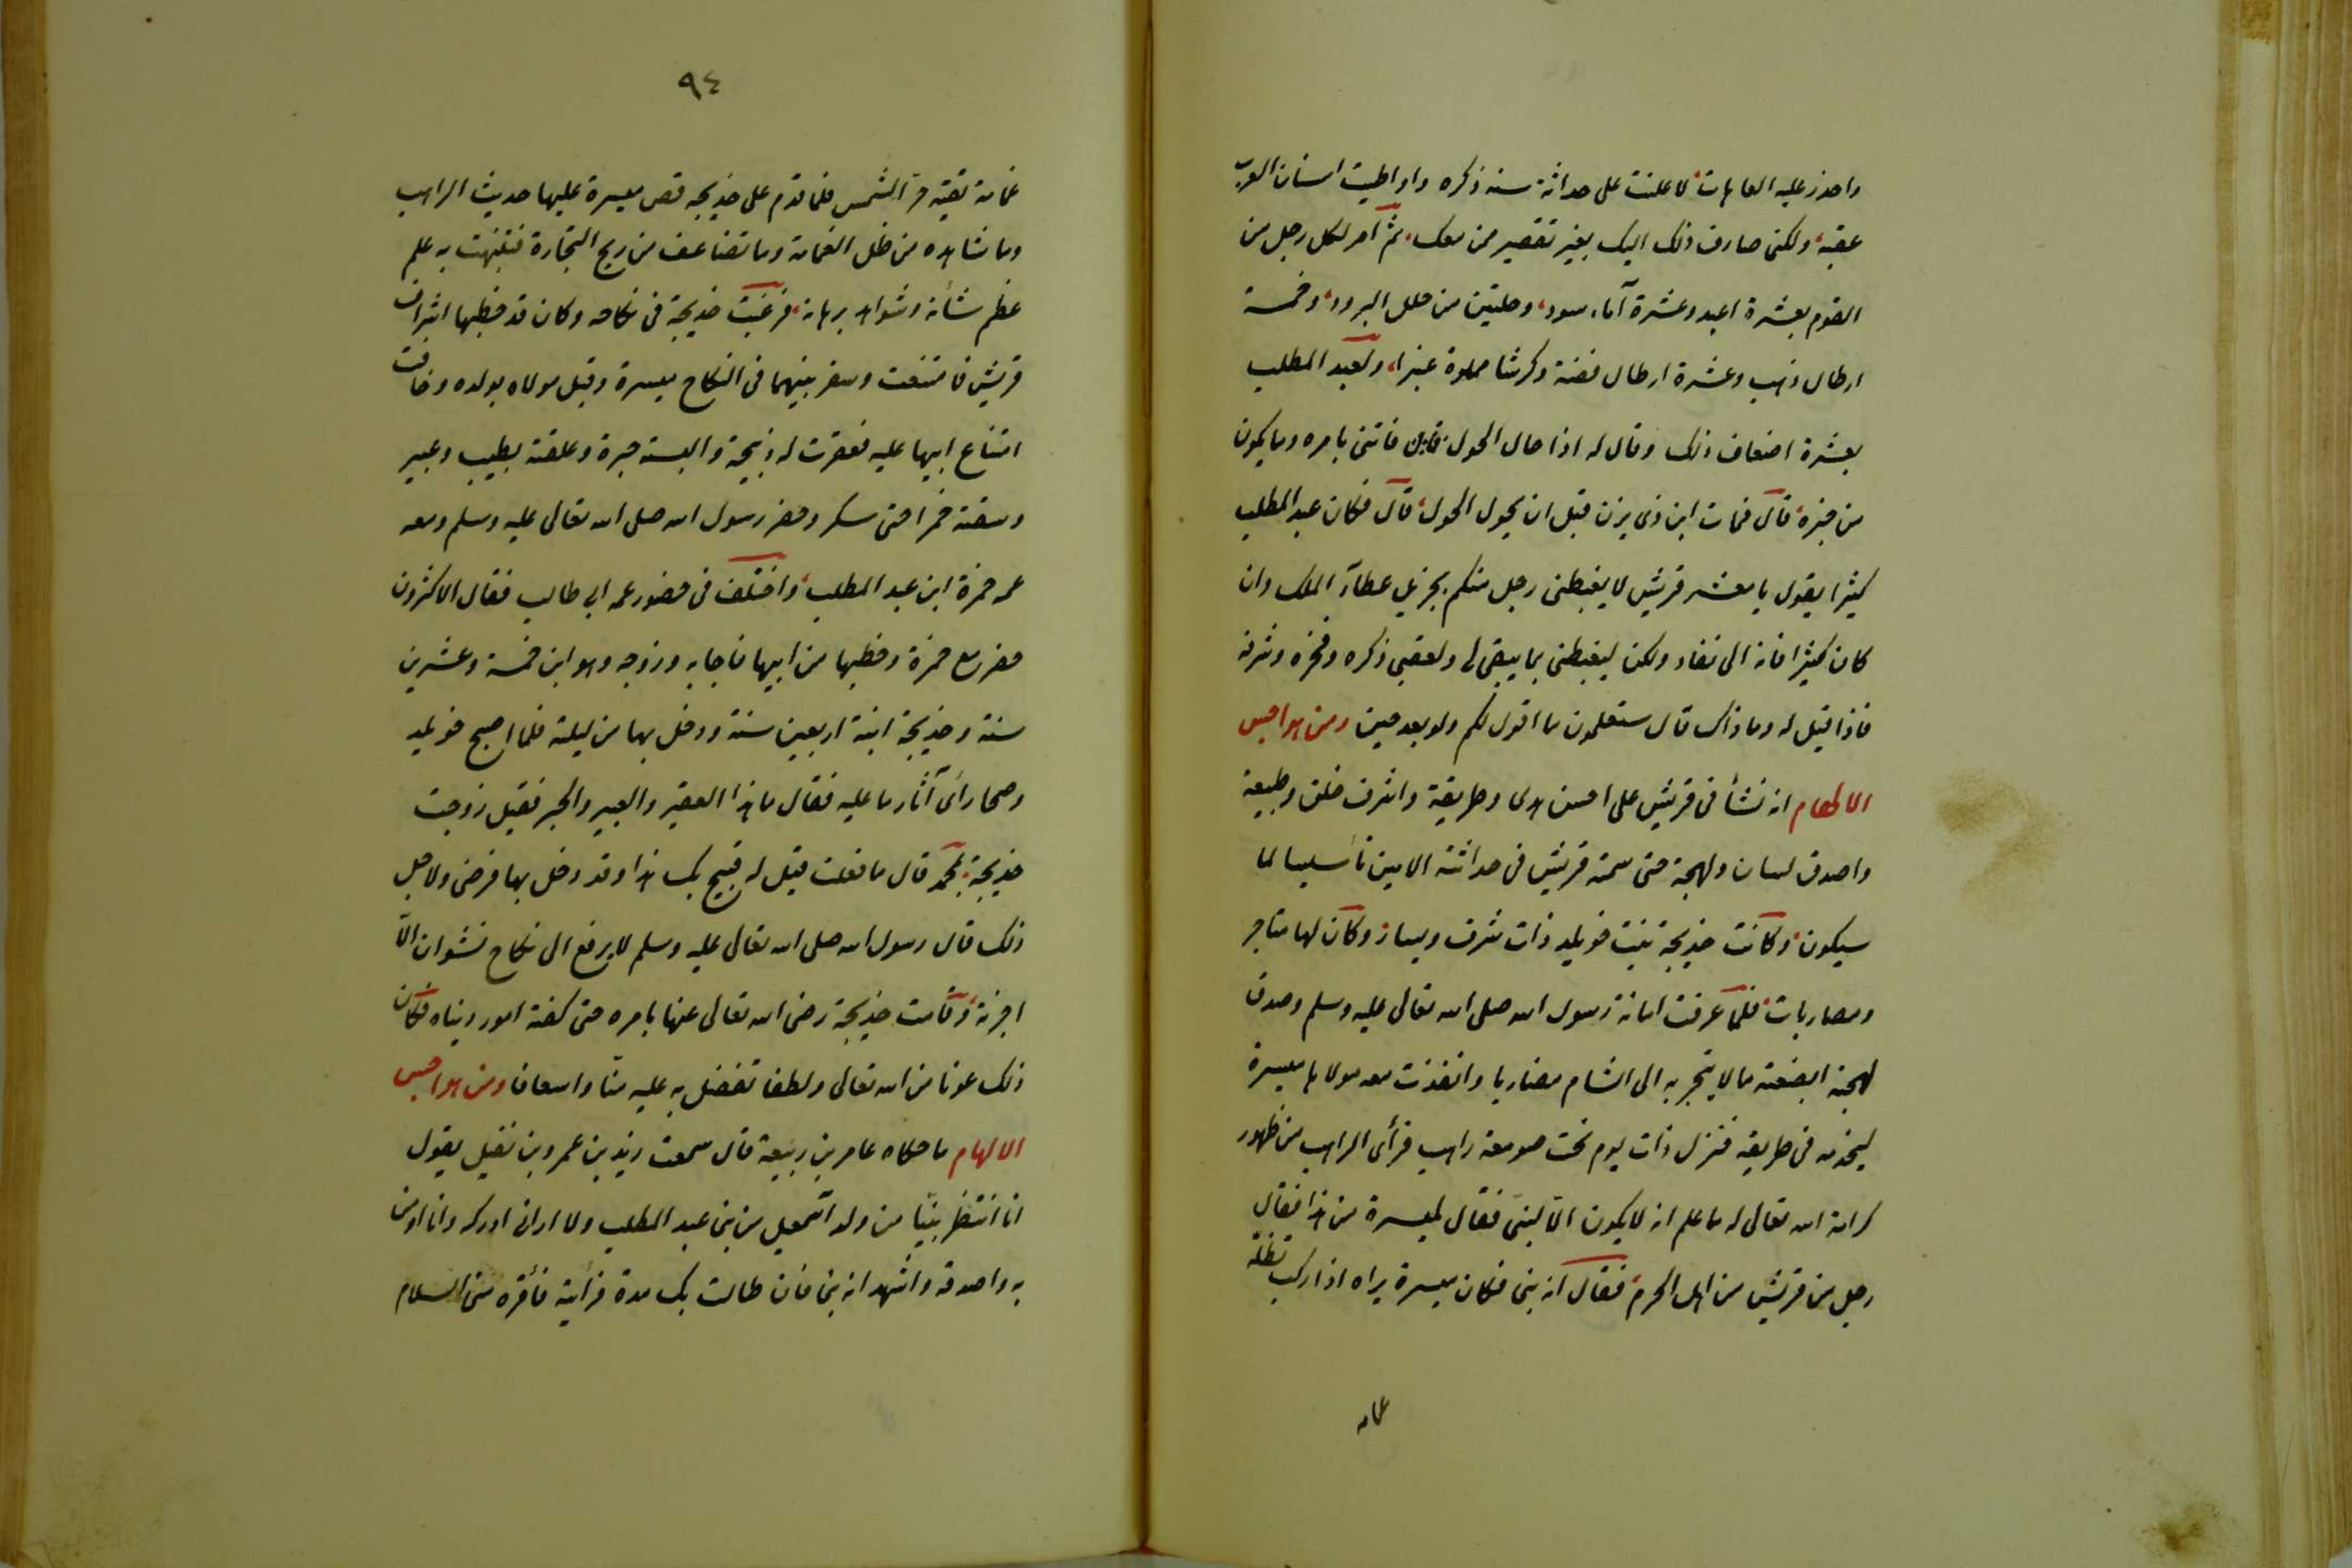 واحذر عليه العاهات لاعلنت على حداثة سنه ذكره واوطيت اسنان العرب
عقبه ولكنى صارف ذلك اليك بغير تقصير ممن معك ثم امر لكل رجل من
القوم بعشرة اعبد وعشرة آماء سود وحلتين من حلل البرود وخمسة
ارطال ذهب وعشرة ارطال فضة وكرشا مملوة عنبرا ولعبد المطلب
بعشرة اضعاف ذلك وقال له اذا حال الحول فأتنى بامره وما يكون
من خبره قال فمات ابن ذى يزن قبل ان يحول الحول قال فكان عبد المطلب
كثيرا يقول يا معشر قريش لا يغبطنى رجل منكم بجزيل عطآء الملك وان
كان كثيرا فانه الى نفاد ولكن ليغبطنى بما يبقى لى ولعقبى ذكره وفخره وشرفه
فاذا قيل له وما ذاك قال ستعلمون ما اقول لكم ولو بعد حين ومن هواجس
الالهام انه نشأ فى قريش على احسن هدى وطريقة واشرف خلق وطبيعة
واصدق لسان ولهجة حتى سمته قريش فى حداثته الامين تأسيسا لما
سيكون وكانت خديجة بنت خويلد ذات شرف ويسار وكان لها متاجر
ومضاربات فلما عرفت امانة رسول الله صلى الله تعالى عليه وسلم وصدق
لهجته ابضعته مالا يتجر به الى الشام مضاربا وانفذت معه مولاها ميسرة
ليخدمه فى طريقه فنزل ذات يوم تحت صومعة راهب فرأى الراهب من ظهور
كرامة الله تعالى له ما علم انه لا يكون الا لنبى فقال لميسرة من هذا فقال
رجل من قريش من اهل الحرم فقال انه نبى فكان ميسرة يراه اذا ركب تظله
غمامة
٩٤
غمامة تقيه حر الشمس فلما قدم على خديجه قص ميسرة عليها حديث الراهب
وما شاهده من ظل الغمامة وما تضاعف من ربح التجارة فتنبهت به على
عظم شأنه وشواهد برهانه فرغبت خديجة فى نكاحه وكان قد خطبها اشراف
قريش فامتنعت وسفر بينهما فى النكاح ميسرة وقيل مولاة مولدة وخافت
امتناع ابيها عليه فعقرت له ذبيحة والبسته حبرة وغلفته بطيب وعبير
وسقته خمرا حتى سكر وحضر رسول الله صلى الله تعالى عليه وسلم ومعه
عمه حمزة ابن عبد المطلب واختلف فى حضور عمه ابى طالب فقال الاكثرون
حضر مع حمزة وخطبها من ابيها فاجابه وزوجه وهو ابن خمسة وعشرين
سنة وخديجة ابنة اربعين سنة ودخل بها من ليلته فلما اصبح خويلد
وصحا رأى آثار ما عليه فقال ما هذا العقير والعبير والحبر فقيل زوجت
خديجة بمحمد قال ما فعلت قيل له قبيح بك هذا وقد دخل بها فرضى ولاجل
ذلك قال رسول الله صلى الله تعالى عليه وسلم لا يرفع الى نكاح نشوان الا
اجزته وقامت خديجة رضى الله تعالى عنها بامره حتى كفته امور دنياه فكان
ذلك عونا من الله تعالى ولطفا تفضل به عليه منا واسعافا ومن هواجس
الالهام ما حكاه عامر بن ربيعة قال سمعت زيد بن عمرو بن نفيل يقول
انا انتظر نبيا من ولد اسمعيل من بنى عبد المطلب ولا ارانى ادركه وانا اومن
به واصدقه واشهد انه نبى فان طالت بك مدة فرأيته فأقره منى السلام